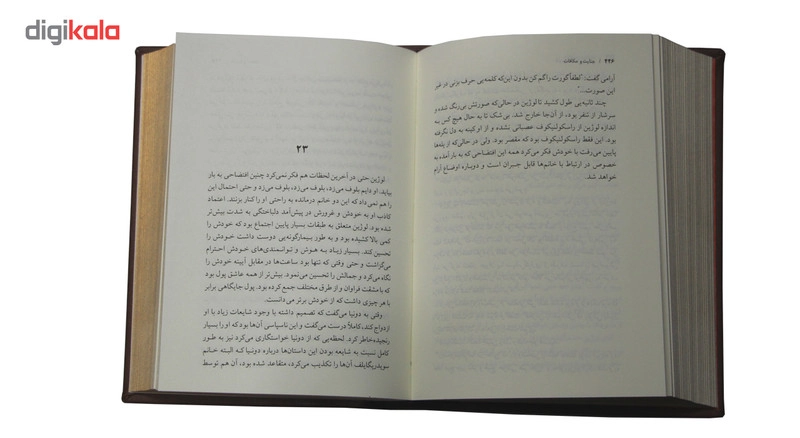 digikala
۴۴۶ / جنایت و مکافات
آرامی گفت: "لطفاً گورت را گم کن بدون این‌که کلمه‌یی حرف بزنی در غیر
این صورت..."
چند ثانیه‌یی طول کشید تا لوژین در حالی‌که صورتش بی‌رنگ شده و
سرشار از تنفر بود، از آن‌جا خارج شد. بی‌شک تا به حال هیچ کس به
اندازه لوژین از راسکولنیکوف عصبانی نشده و از او کینه به دل نگرفته
بود. این فقط راسکولنیکوف بود که مقصر بود. ولی در حالی‌که از پله‌ها
پایین می‌رفت با خودش فکر می‌کرد همه این افتضاحی که به بار آمده به
خصوص در ارتباط با خانم‌ها قابل جبران است و دوباره اوضاع آرام
خواهد شد.
۲۳
لوژین حتی در آخرین لحظات هم فکر نمی‌کرد چنین افتضاحی به بار
بیاید. او دایم بلوف می‌زد، بلوف می‌زد، بلوف می‌زد و حتی احتمال این
را هم نمی‌داد که این دو خانم درمانده به راحتی او را کنار بزنند. اعتماد
کاذب او به خودش و غرورش در پیش‌آمد دلباختگی به شدت بیش‌تر
شده بود. لوژین متعلق به طبقات بسیار پایین اجتماع بود که خودش را
کمی بالا کشیده بود و به طور بیمارگونه‌یی دوست داشت خودش را
تحسین کند. بسیار زیاد به هوش و توانمندی‌های خودش احترام
می‌گزاشت و حتی وقتی که تنها بود ساعت‌ها در مقابل آیینه خودش را
نگاه می‌کرد و جمالش را تحسین می‌نمود. بیش‌تر از همه عاشق پول بود
که با مشقت فراوان و از طرق مختلف جمع کرده بود. پول جایگاهی برابر
با هر چیزی داشت که از خودش برتر می‌دانست.
وقتی به دونیا می‌گفت که تصمیم داشته با وجود شایعات زیاد با او
ازدواج کند، کاملاً درست می‌گفت و این ناسپاسی آن‌ها بود که او را بسیار
رنجیده‌خاطر کرد. لحظه‌یی که از دونیا خواستگاری می‌کرد نیز به طور
کامل نسبت به شایعه بودن این داستان‌ها درباره دونیا که البته خانم
سویدریگایلف آن‌ها را تکذیب می‌کرد، متقاعد شده بود، آن هم توسط